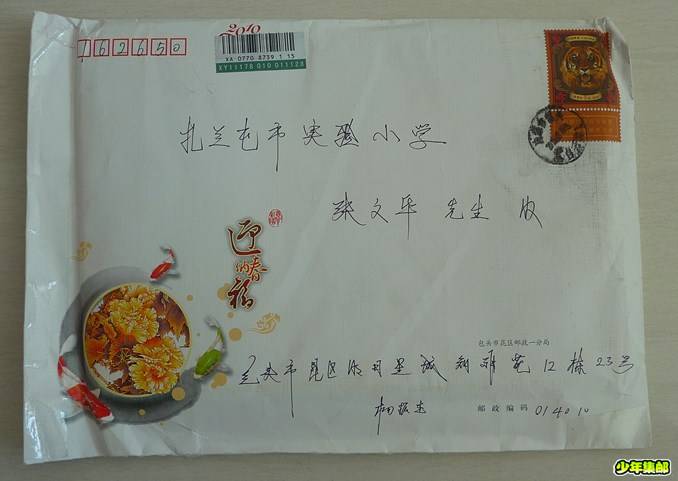 162650
2010
XA 0770 8739 1 15
XY11178 010 011128
扎兰屯市实验小学
张文华 先生 收
迎春
纳福
包头市昆区邮政一分局
包头市昆区明日星城翔雅苑12栋23号
邮政编码 014010
少年集邮